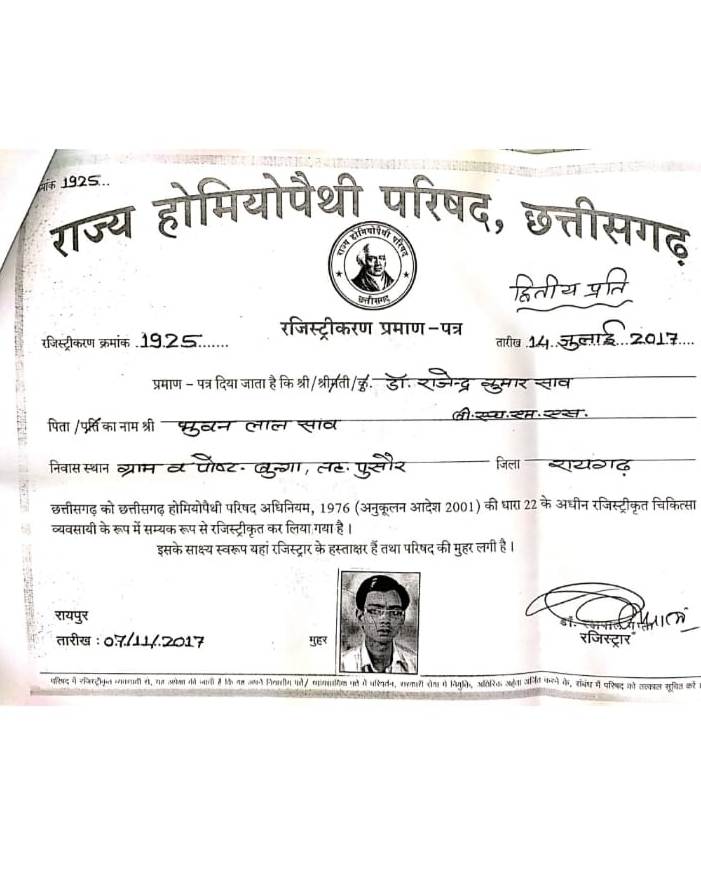 1925...
राज्य होमियोपैथी परिषद, छत्तीसगढ़
राज्य होमियोपैथी परिषद
छत्तीसगढ़
द्वितीय प्रति
रजिस्ट्रीकरण प्रमाण-पत्र
रजिस्ट्रीकरण क्रमांक .1925....... तारीख .14..जुलाई...2017....
प्रमाण - पत्र दिया जाता है कि श्री/श्रीमती/कु. डॉ. राजेन्द्र कुमार साव
बी.एच.एम.एस.
पिता /पति का नाम श्री भुवन लाल साव
निवास स्थान ग्राम व पोष्ट- बुन्गा, तह. पुसौर जिला रायगढ़
छत्तीसगढ़ को छत्तीसगढ़ होमियोपैथी परिषद अधिनियम, 1976 (अनुकूलन आदेश 2001) की धारा 22 के अधीन रजिस्ट्रीकृत चिकित्सा
व्यवसायी के रूप में सम्यक रूप से रजिस्ट्रीकृत कर लिया गया है ।
इसके साक्ष्य स्वरूप यहां रजिस्ट्रार के हस्ताक्षर हैं तथा परिषद की मुहर लगी है ।
रायपुर
तारीख : 07/11/2017 मुहर
डॉ.
रजिस्ट्रार
परिषद में रजिस्ट्रीकृत व्यवसायी से, यह अपेक्षा की जाती है कि वह अपने निवासीय पते/ व्यावसायिक पते में परिवर्तन, सरकारी सेवा में नियुक्ति, अतिरिक्त अर्हता अर्जित करने के, संबंध में परिषद को तत्काल सूचित करें